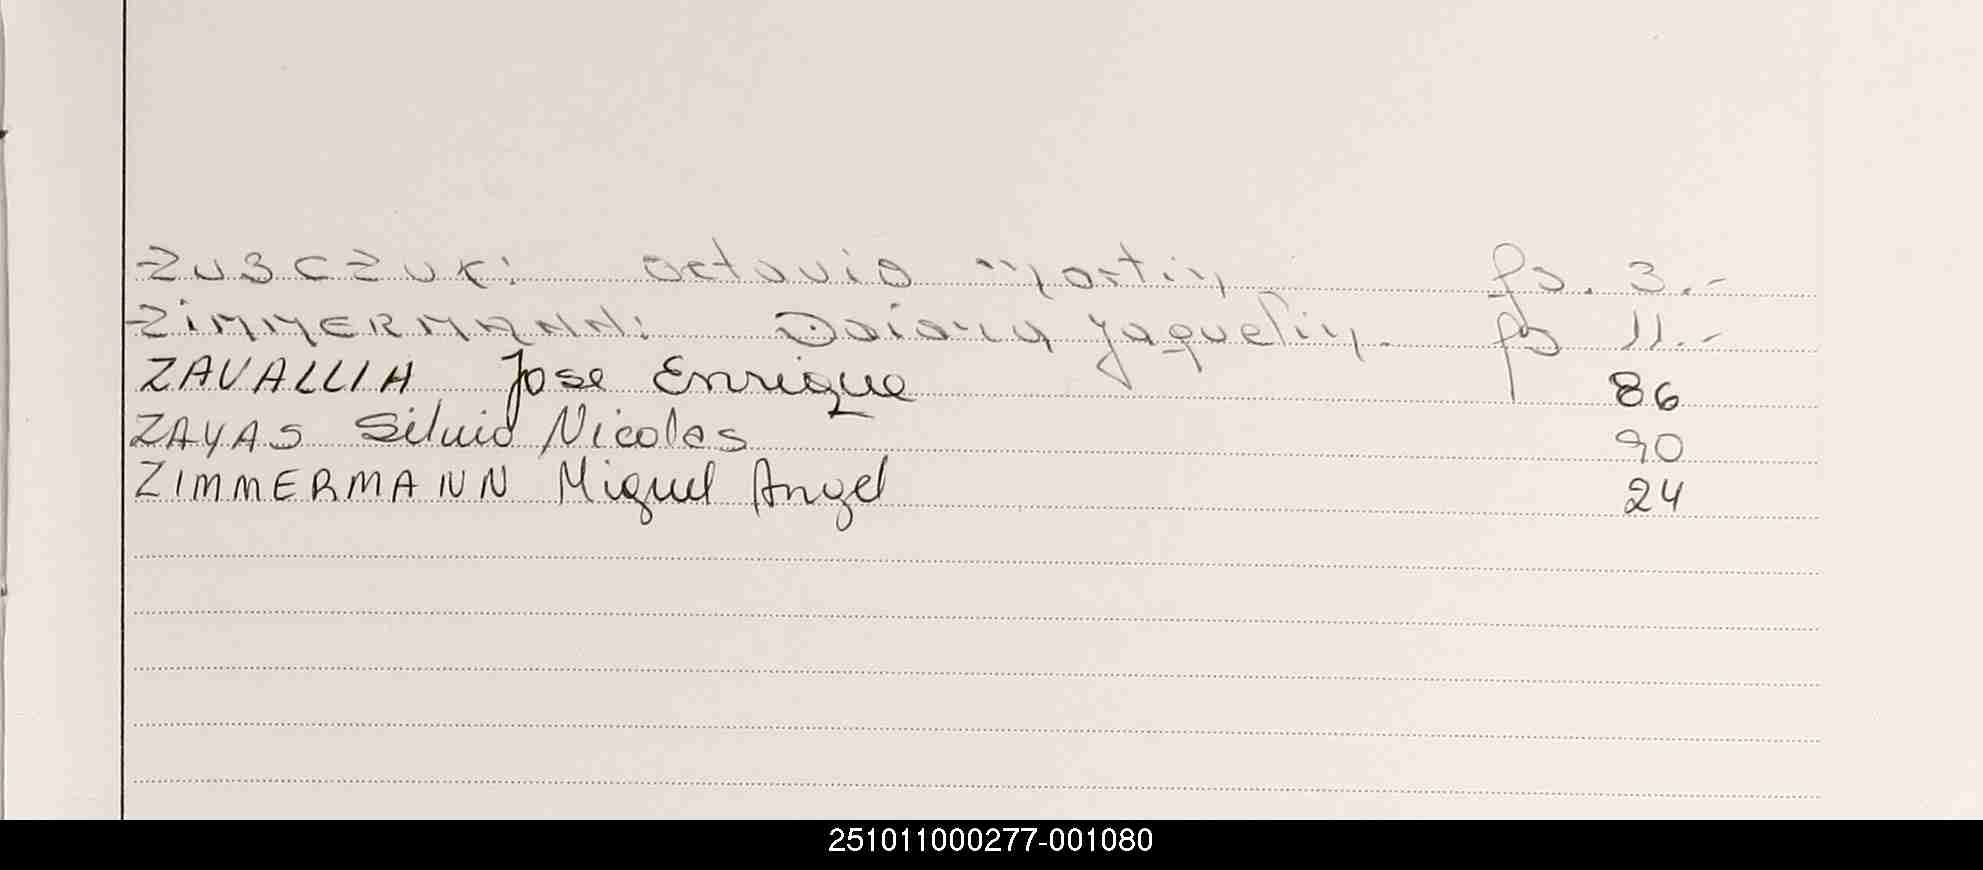 ZUBCZUK: Octavio Martin fs. 3.-
ZIMMERMANN: Daiana Jaquelin. fs 11.-
ZAVALLIA Jose Enrique 86
ZAYAS Silvio Nicolas 90
ZIMMERMANN Miguel Angel 24
251011000277-001080